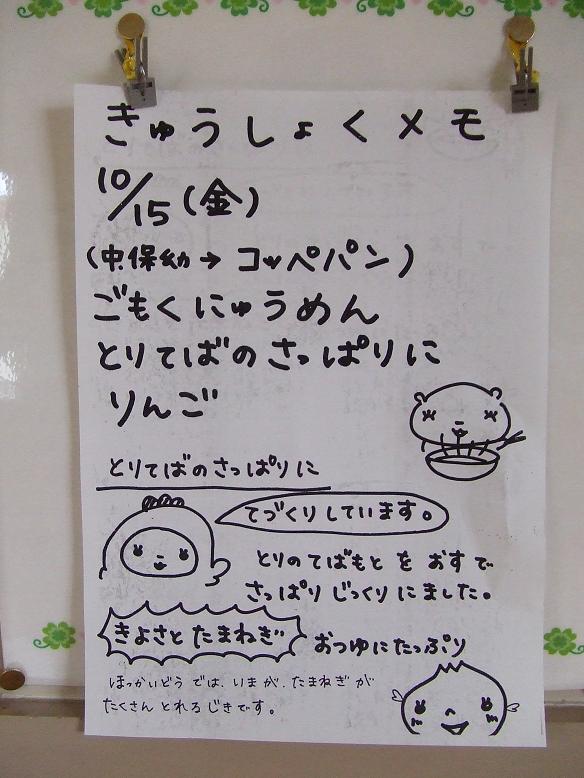 きゅうしょくメモ
10/15(金)
(中.保幼→コッペパン)
ごもくにゅうめん
とりてばのさっぱりに
りんご
とりてばのさっぱりに
てづくりしています。
とりのてばもとをおすで
さっぱりじっくりにました。
きよさとたまねぎ
おつゆにたっぷり
ほっかいどうでは、いまが、たまねぎが
たくさんとれるじきです。